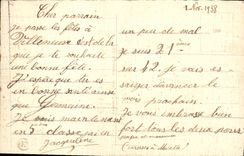 1 Nov. 1938
Cher parrain
je passe les fêtes à
Villeneuve et de la
que je te souhaite
une bonne fête.
J'espère que tu es
en bonne santé ainsi
que Germaine.
Je suis maintenant
en 5 classe, j'ai eu
un peu de mal
je suis 21e
sur 42. Je vais es-
sayer d'avancer le
mois prochain
Je vous embrasse bien
fort tous les deux
Jacqueline